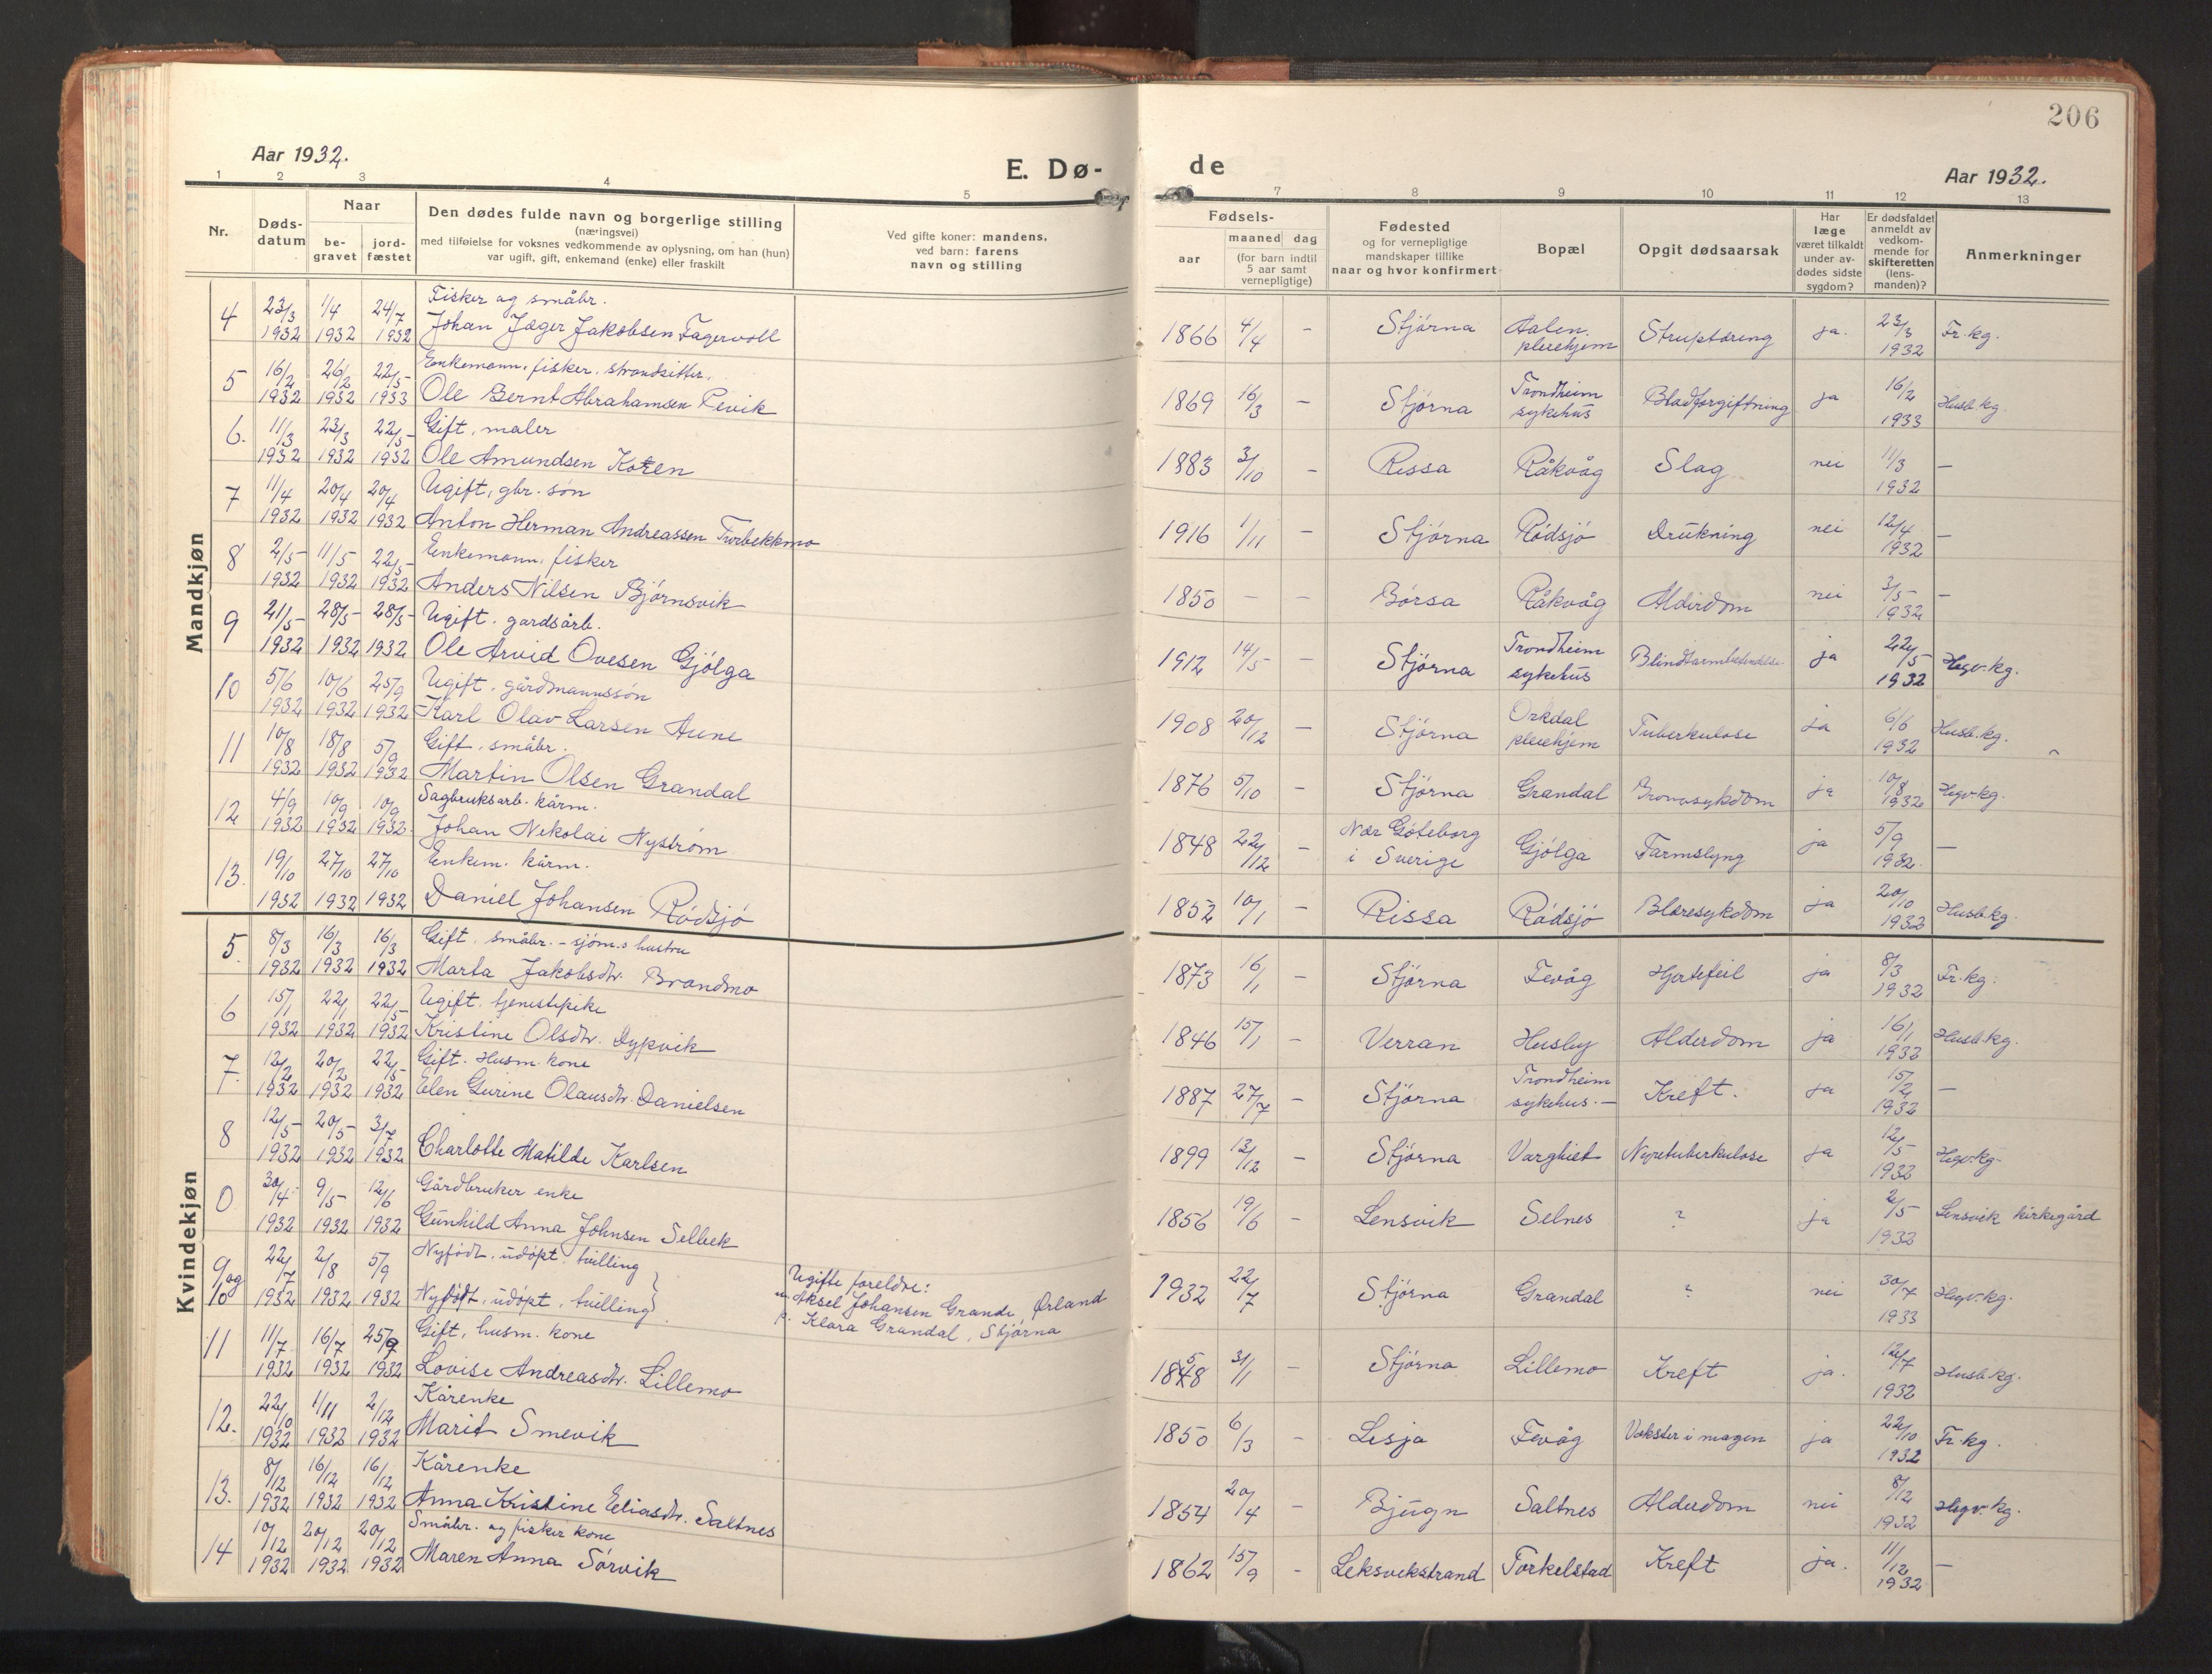 206
Aar 1932.
E. Dø- de
Aar 1932.
1 2 3 4 5 6 7 8 9 10 11 12 13
Nr.
Døds-
datum
Naar
be-
gravet
jord-
fæstet
Den dødes fulde navn og borgerlige stilling
(næringsvei)
med tilføielse for voksnes vedkommende av oplysning, om han (hun)
var ugift, gift, enkemand (enke) eller fraskilt
Ved gifte koner: mandens,
ved barn: farens
navn og stilling
Fødsels-
aar
maaned dag
(for barn indtil
5 aar samt
vernepligtige)
Fødested
og for vernepligtige
mandskaper tillike
naar og hvor konfirmert
Bopæl
Opgit dødsaarsak
Har
læge
været tilkaldt
under av-
dødes sidste
sygdom?
Er dødsfaldet
anmeldt av
vedkom-
mende for
skifteretten
(lens-
manden)?
Anmerkninger
Mandkjøn
4 23/3 1/4 24/7 Fisker og småbr. 1866 4/4 – Stjørna Aalen Struptæring ja. 23/3 Fr. kg.
1932 1932 1932 Johan Jæger Jakobsen Fagervoll pleiehjem 1932
5 16/2 26/2 22/5 Enkemann, fisker, strandsitter. 1869 16/3 – Stjørna Trondheim Blodforgiftning ja 16/2 Husb. kg.
1932 1932 1933 Ole Bernt Abrahamsen Revik sykehus 1933
6. 11/3 23/3 22/5 Gift, maler 1883 3/10 – Rissa Råkvåg Slag nei 11/3 –
1932 1932 1932 Ole Amundsen Koren 1932
7 11/4 20/4 20/4 Ugift, gbr. søn 1916 1/11 – Stjørna Rødsjø Drukning nei 12/4 –
1932 1932 1932 Anton Herman Andreassen Turbekkmo 1932
8 2/5 11/5 22/5 Enkemann, fisker 1850 – – Børsa Råkvåg Alderdom nei 3/5 –
1932 1932 1932 Anders Nilsen Bjørnsvik 1932
9 21/5 28/5 28/5 Ugift. gardsarb. 1912 14/5 – Stjørna Trondheim Blindtarmbetendelse ja 22/5 Hegv. kg.
1932 1932 1932 Ole Arvid Ovesen Gjølga sykehus 1932
10 5/6 10/6 25/9 Ugift. gårdmannssøn 1908 20/12 – Stjørna Orkdal Tuberkulose ja 6/6 Husb. kg.
1932 1932 1932 Karl Olav Larsen Aune pleiehjem 1932
11 10/8 18/8 5/9 Gift, småbr. 1876 5/10 – Stjørna Grandal ja 10/8 Hegv. kg.
1932 1932 1932 Martin Olsen Grandal 1932
12 4/9 10/9 10/9 Sagbruksarb. kårm. 1848 22/12 – Nær Göteborg Gjølga Tarmslyng ja 5/9 –
1932 1932 1932 Johan Nikolai Nystrøm i Sverige 1932.
13. 19/10 27/10 27/10 Enkem. kårm. 1852 10/1 – Rissa Rødsjø Blæresykdom ja 20/10 Husb. kg.
1932 1932 1932 Daniel Johansen Rødsjø 1932
Kvindekjøn
5. 8/3 16/3 16/3 Gift, småbr. – sjøm.s hustru 1873 16/1 – Stjørna Fevåg Hjertefeil ja 8/3 Fr. kg.
1932 1932 1932 Marta Jakobsdtr. Brandmo 1932
6 15/1 22/1 22/5 Ugift. tjenestepike 1846 15/1 – Verran Husby Alderdom ja 16/1 Husb. kg.
1932 1932 1932 Kristine Olsdtr. Dypvik 1932
7. 12/2 20/2 22/5 Gift. Husm. kone 1887 27/7 – Stjørna Trondheim Kreft. ja 15/2 –
1932 1932 1932 Elen Gurine Olausdtr. Danielsen sykehus. – 1932
8 12/5 20/5 3/7 1899 13/12 – Stjørna Varghiet Nyretuberkulose ja 12/5 Hegv. kg.
1932 1932 1932 Charlotte Matilde Karlsen 1932
0 30/4 9/5 12/6 Gårdbruker enke 1856 19/6 – Lensvik Selnes ? ja 2/5 Lensvik kirkegård
1932 1932 1932 Gunhild Anna Johnsen Selbek 1932
9 og 22/7 2/8 5/9 Nyfødt, udøpt. tvilling Ugifte foreldre: 1932 22/7 Stjørna Grandal ? nei 30/7 Hegv. kg.
10 1932 1932 1932 Nyfødt, udøpt, tvilling m. Aksel Johansen Grande, Ørland 1933
p. Klara Grandal, Stjørna
11 11/7 16/7 25/9 Gift, husm. kone 1848 5 31/1 – Stjørna Lillemo Kreft ja. 12/7 Husb. kg.
1932 1932 1932 Lovise Andreasdtr. Lillemo 1932
12. 22/10 1/11 2/12 Kårenke 1850 6/3 – Lesja Fevåg Vekster i magen ja 22/10 Fr. kg.
1932 1932 1932 Marit Smevik 1932
13. 8/12 16/12 16/12 Kårenke 1854 20/4 – Bjugn Saltnes Alderdom nei 8/12 Hegv. kg.
1932 1932 1932 Anna Kristine Eliasdtr. Saltnes 1932
14 10/12 20/12 20/12 Småbr. og fisker kone 1862 15/9 – Leksvikstrand Torkelstad Kreft ja. 11/12 –
1932 1932 1932 Maren Anna Sørvik 1932